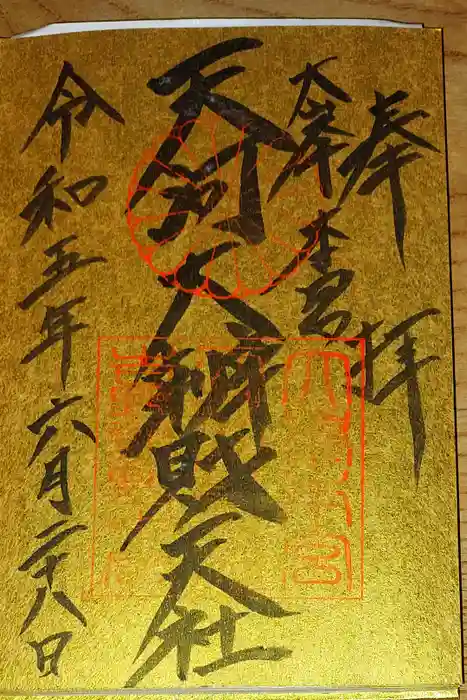 奉拝
大峯本宮
天河大辨財天社
令和五年六月二十八日